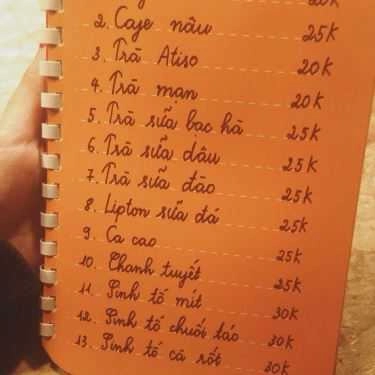 20K
2. Cafe nâu 25K
3. Trà Atiso 20K
4. Trà mạn 20K
5. Trà sữa bạc hà 25K
6. Trà sữa dâu 25K
7. Trà sữa đào 25K
8. Lipton sữa đá 25K
9. Ca cao 25K
10. Chanh tuyết 25K
11. Sinh tố mít 30K
12. Sinh tố chuối táo 30K
13. Sinh tố cà rốt 30K